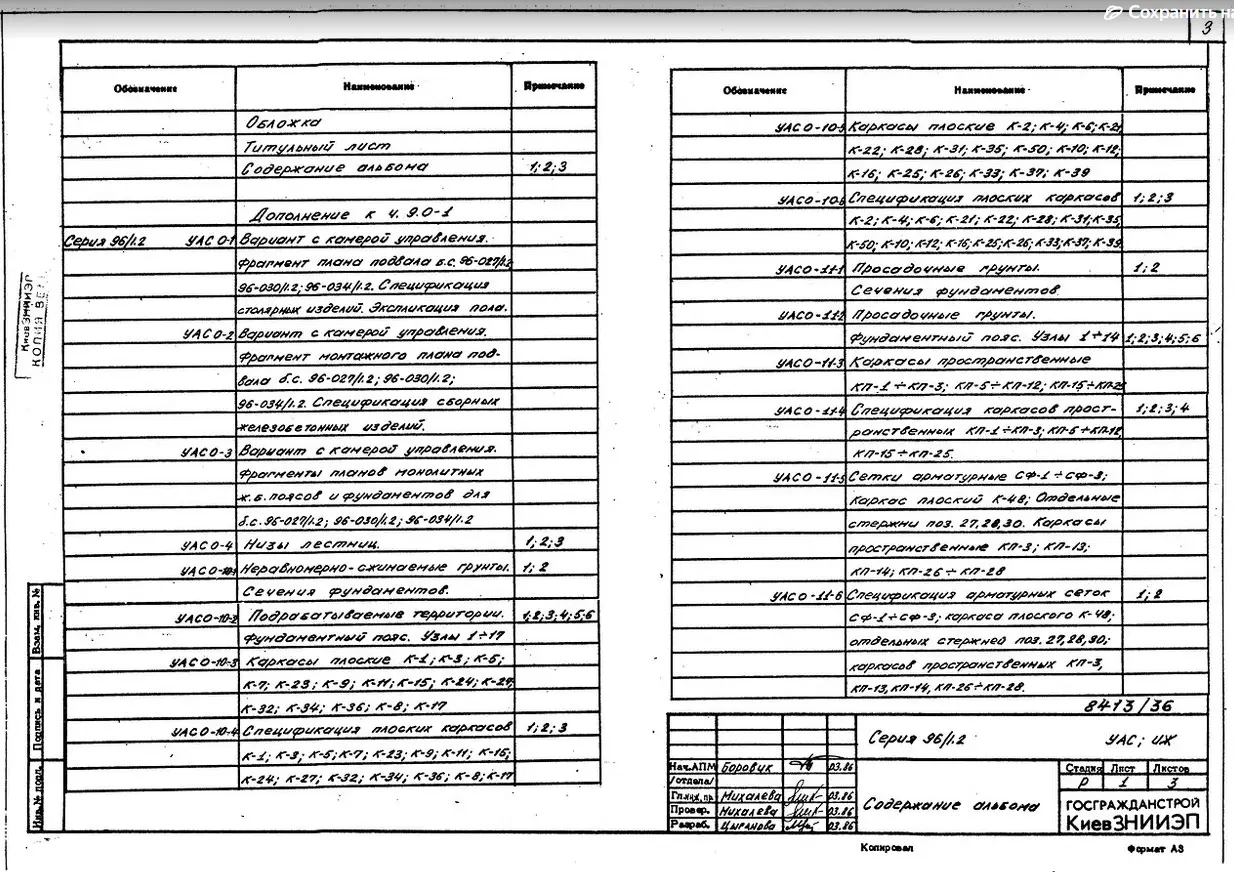 Сохранить на
3
Обозначение Наименование Примечание
Обложка
Титульный лист
Содержание альбома 1; 2; 3
Дополнение к ч. 9.0-1
Серия 96/1.2 УАС 0-1 Вариант с камерой управления.
Фрагмент плана подвала б.с. 96-027/1.2
96-030/1.2; 96-034/1.2. Спецификация
столярных изделий. Экспликация пола.
УАС 0-2 Вариант с камерой управления.
Фрагмент монтажного плана под-
вала б.с. 96-027/1.2; 96-030/1.2;
96-034/1.2. Спецификация сборных
железобетонных изделий.
УАС 0-3 Вариант с камерой управления.
Фрагменты планов монолитных
ж.б. поясов и фундаментов для
б.с. 96-027/1.2; 96-030/1.2; 96-034/1.2
УАС 0-4 Низы лестниц. 1; 2; 3
УАС 0-10-1 Неравномерно-сжимаемые грунты. 1; 2
Сечения фундаментов.
УАС 0-10-2 Подрабатываемые территории. 1; 2; 3; 4; 5; 6
Фундаментный пояс. Узлы 1÷17
УАС 0-10-3 Каркасы плоские К-1; К-3; К-5;
К-7; К-23; К-9; К-11; К-15; К-24; К-27;
К-32; К-34; К-36; К-8; К-17
УАС 0-10-4 Спецификация плоских каркасов 1; 2; 3
К-1; К-3; К-5; К-7; К-23; К-9; К-11; К-15;
К-24; К-27; К-32; К-34; К-36; К-8; К-17
Обозначение Наименование Примечание
УАС 0-10-5 Каркасы плоские К-2; К-4; К-6; К-21
К-22; К-28; К-31; К-35; К-50; К-10; К-12;
К-16; К-25; К-26; К-33; К-37; К-39
УАС 0-10-6 Спецификация плоских каркасов 1; 2; 3
К-2; К-4; К-6; К-21; К-22; К-28; К-31; К-35,
К-50; К-10; К-12; К-16; К-25; К-26; К-33; К-37; К-39
УАС 0-11-1 Просадочные грунты. 1; 2
Сечения фундаментов.
УАС 0-11-2 Просадочные грунты.
Фундаментный пояс. Узлы 1÷14 1; 2; 3; 4; 5; 6
УАС 0-11-3 Каркасы пространственные
КП-1÷КП-3; КП-5÷КП-12; КП-15÷КП-25
УАС 0-11-4 Спецификация каркасов прост- 1; 2; 3; 4
ранственных КП-1÷КП-3; КП-5÷КП-12,
КП-15÷КП-25.
УАС 0-11-5 Сетки арматурные СФ-1÷СФ-3;
Каркас плоский К-48; Отдельные
стержни поз. 27, 28, 30. Каркасы
пространственные КП-3; КП-13;
КП-14; КП-26÷КП-28
УАС 0-11-6 Спецификация арматурных сеток 1; 2
СФ-1÷СФ-3; каркаса плоского К-48;
отдельных стержней поз. 27, 28, 30;
каркасов пространственных КП-3,
КП-13, КП-14, КП-26÷КП-28.
8413/36
КиевЗНИИЭП
КОПИЯ
Взам. инв. №
Подпись и дата
Инв. № подл.
Серия 96/1.2 УАС; ИЖ
Нач. АПМ Боровик 03.86
/отдела/
Гл. инж. пр. Михалева 03.86
Провер. Михалева 03.86
Разраб. Цыганова 03.86
Содержание альбома
Стадия Лист Листов
Р 1 3
ГОСГРАЖДАНСТРОЙ
КиевЗНИИЭП
Копировал Формат А3